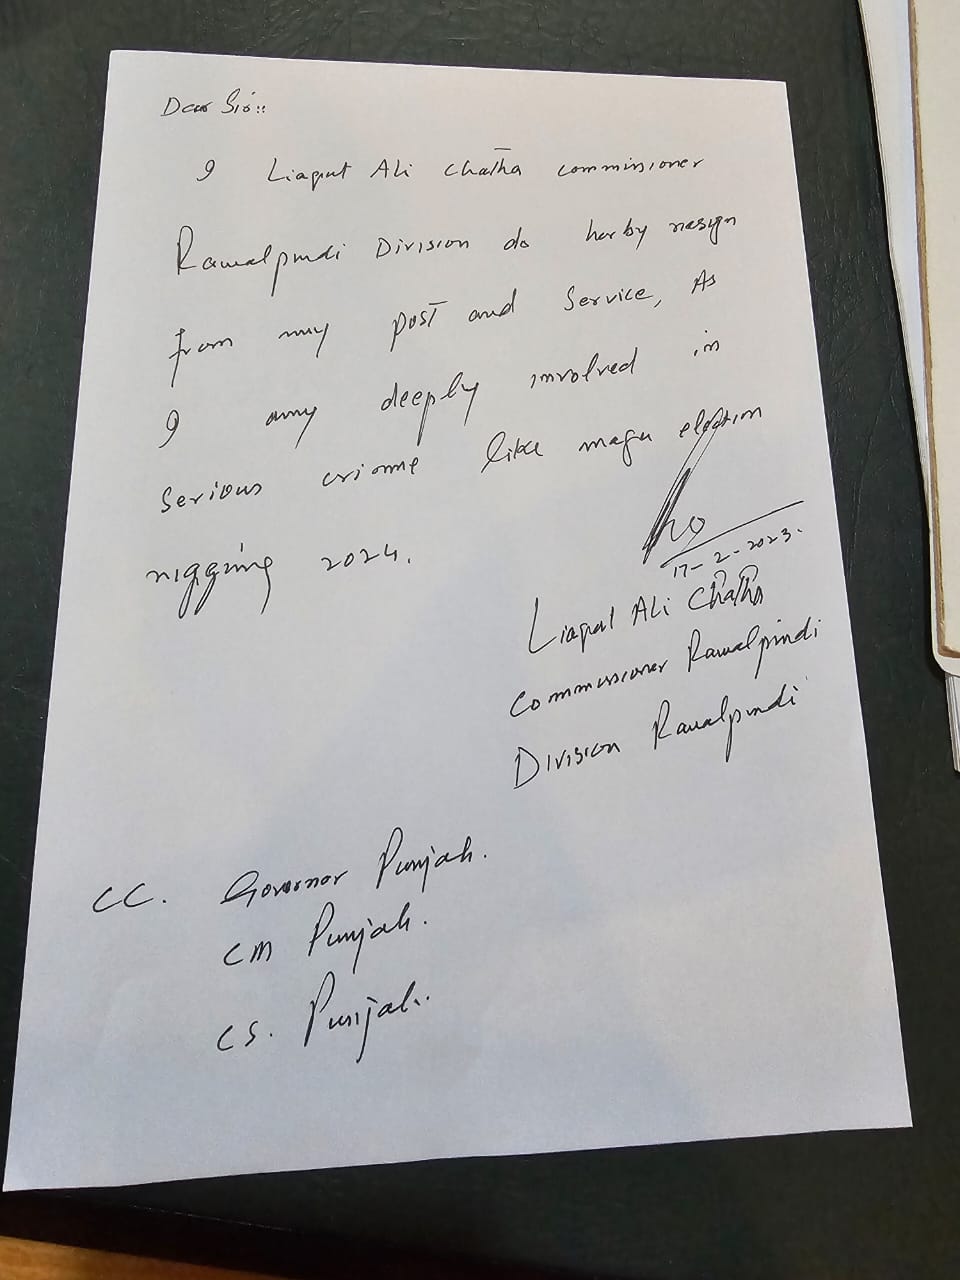 Dear Sir::
I Liaqut Ali Chatha commissioner
Rawalpindi Division do herby resign
from my post and Service, As
I amy deeply involved in
Serious criome like mega election
rigging 2024.
17-2-2023.
Liaqut Ali Chatha
Commissioner Rawalpindi
Division Rawalpindi
CC. Governor Punjab.
CM Punjab.
CS. Punjab.